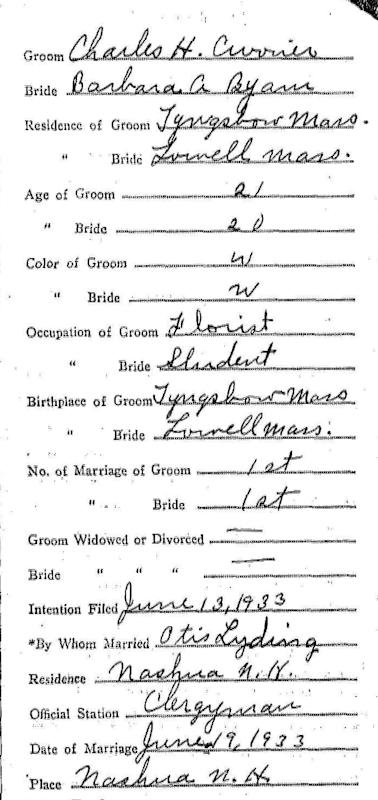 Groom Charles H. Currier
Bride Barbara A Byam
Residence of Groom Tyngsboro Mass.
" Bride Lowell Mass.
Age of Groom 21
" Bride 20
Color of Groom W
" Bride W
Occupation of Groom Florist
" Bride Student
Birthplace of Groom Tyngsboro Mass
" Bride Lowell Mass.
No. of Marriage of Groom 1st
" Bride 1st
Groom Widowed or Divorced —
Bride " " " —
Intention Filed June 13, 1933
*By Whom Married Otis Lyding
Residence Nashua N.H.
Official Station Clergyman
Date of Marriage June 19, 1933
Place Nashua N.H.